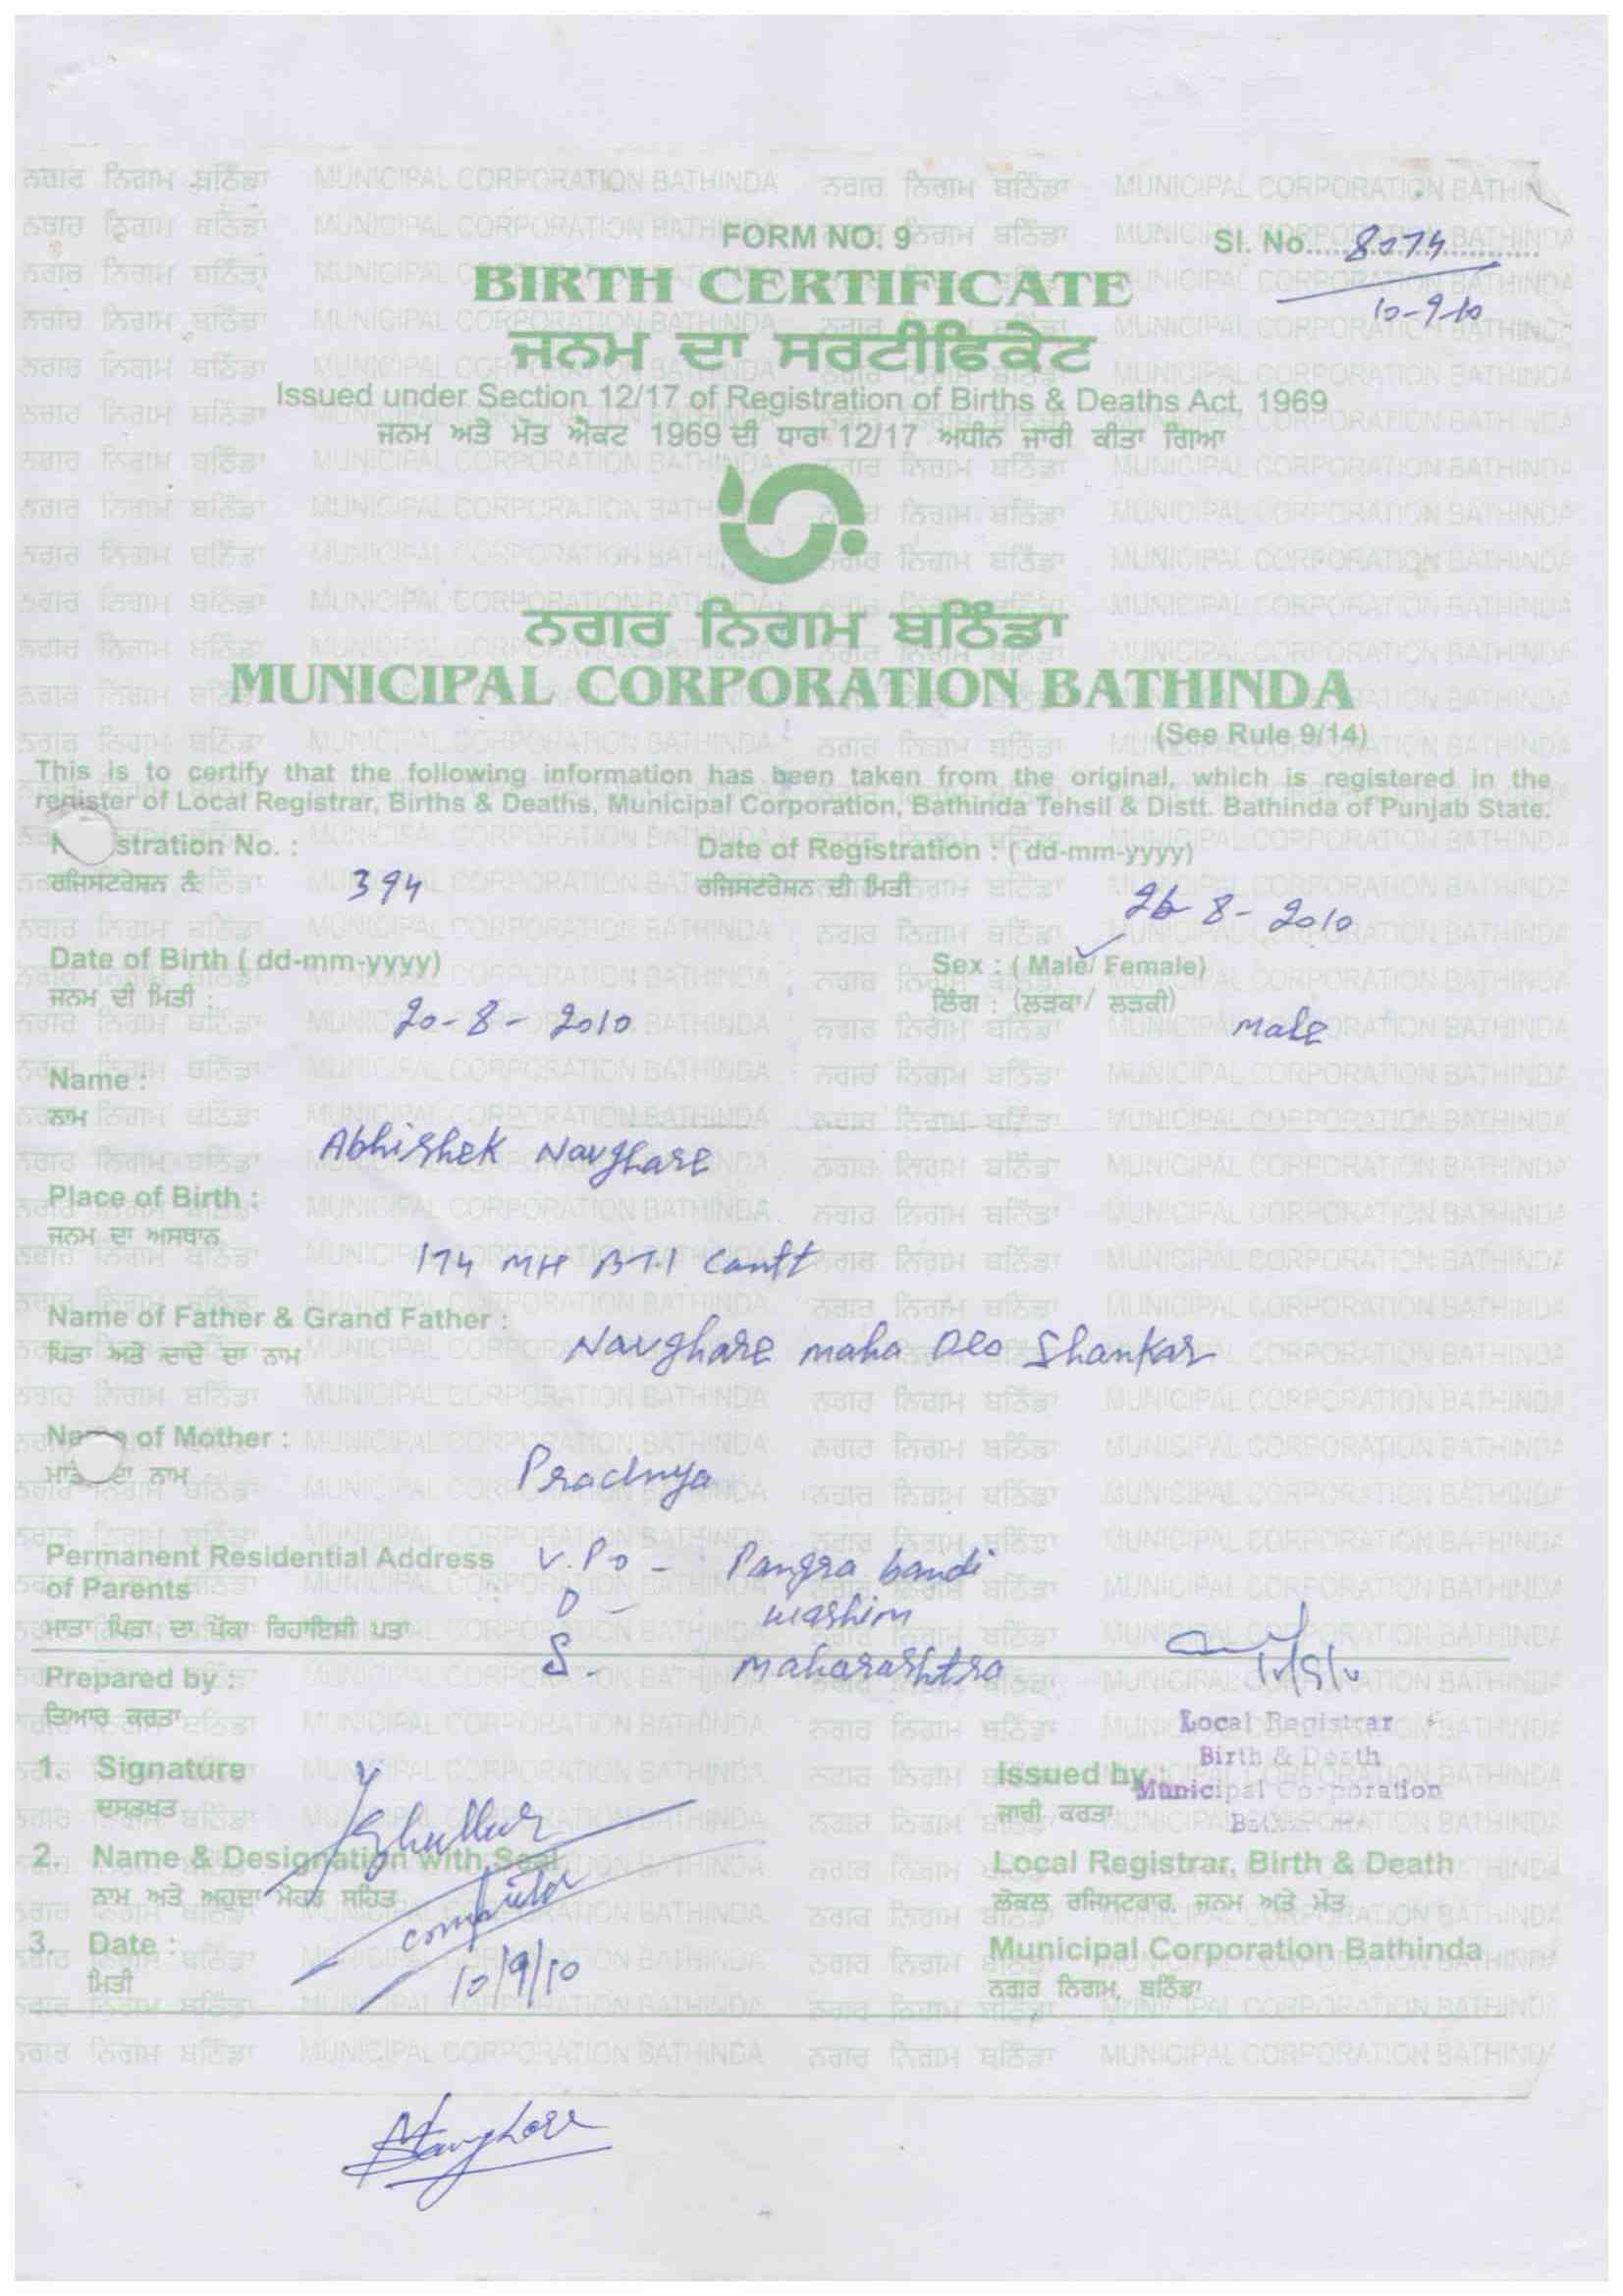 FORM NO. 9
Sl. No. 8074
10-9-10
BIRTH CERTIFICATE
ਜਨਮ ਦਾ ਸਰਟੀਫਿਕੇਟ
Issued under Section 12/17 of Registration of Births & Deaths Act, 1969
ਜਨਮ ਅਤੇ ਮੌਤ ਐਕਟ 1969 ਦੀ ਧਾਰਾ 12/17 ਅਧੀਨ ਜਾਰੀ ਕੀਤਾ ਗਿਆ
ਨਗਰ ਨਿਗਮ ਬਠਿੰਡਾ
MUNICIPAL CORPORATION BATHINDA
(See Rule 9/14)
This is to certify that the following information has been taken from the original, which is registered in the
register of Local Registrar, Births & Deaths, Municipal Corporation, Bathinda Tehsil & Distt. Bathinda of Punjab State.
stration No. : Date of Registration : ( dd-mm-yyyy)
ਰਜਿਸਟਰੇਸ਼ਨ ਨੰ 394 ਰਜਿਸਟਰੇਸ਼ਨ ਦੀ ਮਿਤੀ 26-8-2010
Date of Birth ( dd-mm-yyyy) Sex : ( Male/ Female)
ਜਨਮ ਦੀ ਮਿਤੀ : 20-8-2010 ਲਿੰਗ : (ਲੜਕਾ/ ਲੜਕੀ) Male
Name :
ਨਾਮ
Abhishek Navghare
Place of Birth :
ਜਨਮ ਦਾ ਅਸਥਾਨ
174 MH BTI Cantt
Name of Father & Grand Father :
ਪਿਤਾ ਅਤੇ ਦਾਦੇ ਦਾ ਨਾਮ Navghare maha Deo Shankar
of Mother :
ਦਾ ਨਾਮ Pradnya
Permanent Residential Address V.Po - Pangra bandi
of Parents D - washim
ਮਾਤਾ ਪਿਤਾ ਦਾ ਪੱਕਾ ਰਿਹਾਇਸ਼ੀ ਪਤਾ
S. - maharashtra
Prepared by :
ਤਿਆਰ ਕਰਤਾ
Local Registrar
Birth & Death
Municipal Corporation
1. Signature Issued by
ਦਸਤਖਤ ਜਾਰੀ ਕਰਤਾ
2. Name & Designation with Seal Local Registrar, Birth & Death
ਨਾਮ ਅਤੇ ਅਹੁਦਾ ਮੋਹਰ ਸਹਿਤ ਲੋਕਲ ਰਜਿਸਟਰਾਰ, ਜਨਮ ਅਤੇ ਮੌਤ
3. Date : Municipal Corporation Bathinda
ਮਿਤੀ 10/9/10 ਨਗਰ ਨਿਗਮ, ਬਠਿੰਡਾ